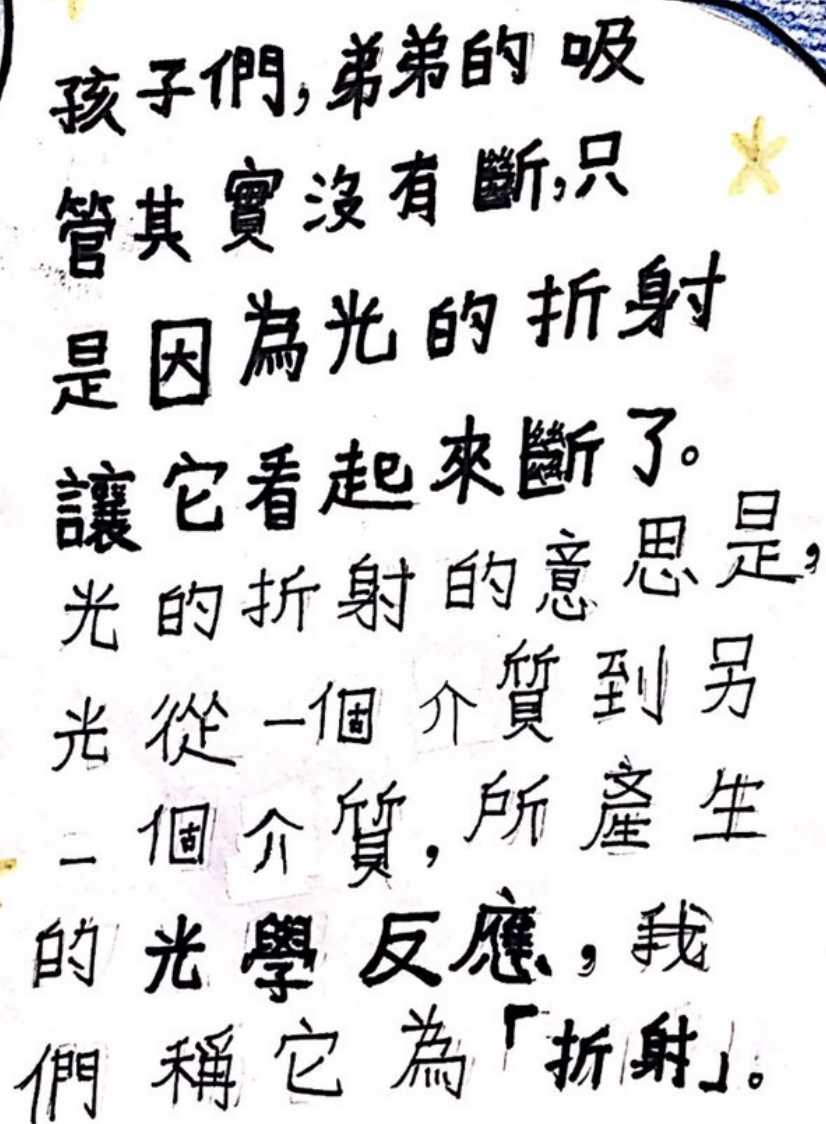 孩子們,弟弟的吸
管其實沒有斷,只
是因為光的折射
讓它看起來斷了。
光的折射的意思是,
光從一個介質到另
一個介質,所產生
的光學反應,我
們稱它為「折射」。